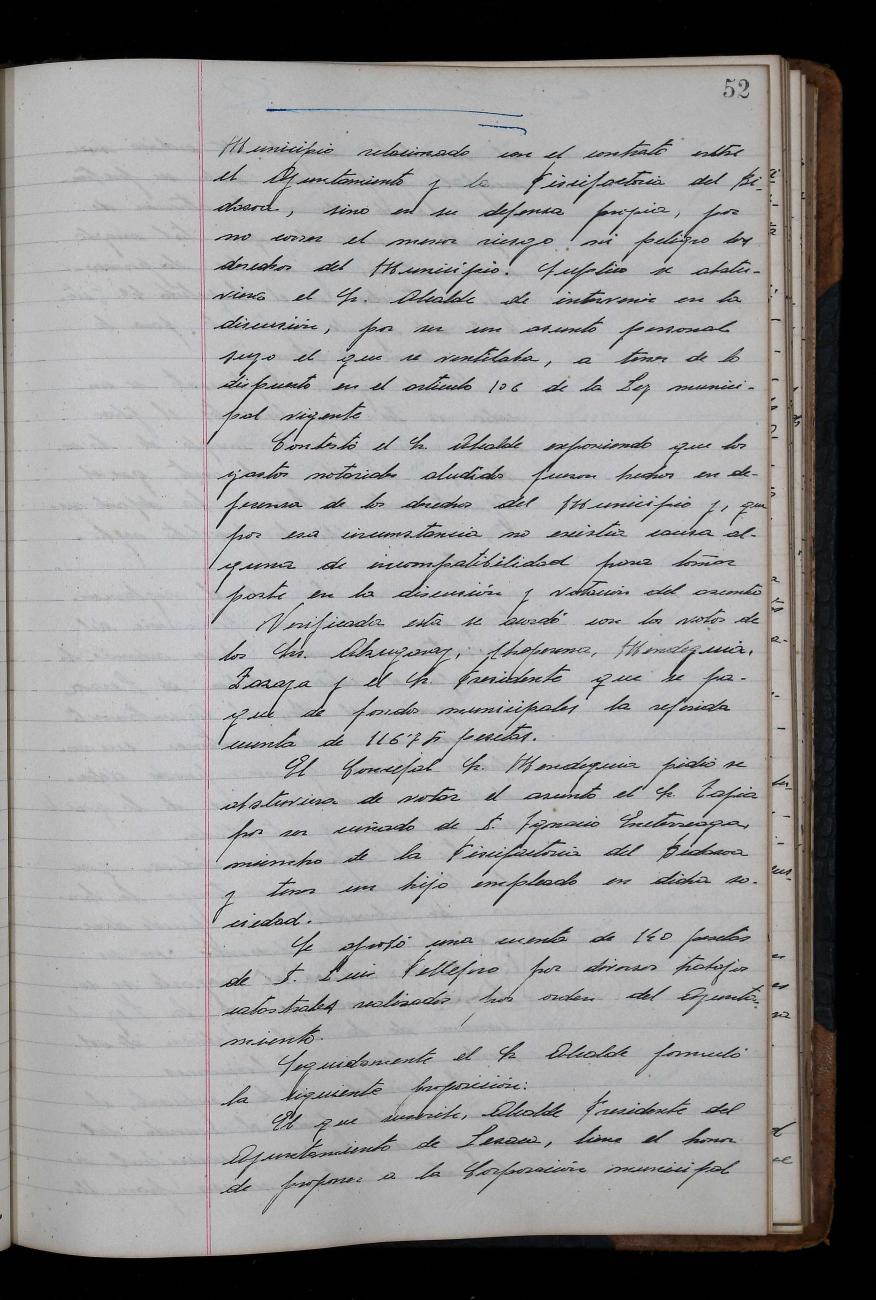 52
Municipio relacionado con el contrato entre
el Ayuntamiento y la Piscifactoria del Bi-
dasoa, sino en su defensa propia, por
no correr el menor riesgo ni peligro los
derechos del Municipio. Suplico se abstu-
viera el Sr. Alcalde de intervenir en la
discusión, por ser un asunto personal
suyo el que se ventilaba, a tenor de lo
dispuesto en el articulo 106 de la Ley munici-
pal vigente
Contestó el Sr. Alcalde exponiendo que los
gastos notariales aludidos fueron hechos en de-
fensa de los derechos del Municipio y, que
por esa circunstancia no existia causa al-
guna de incompatibilidad para tomar
parte en la discusión y votación del asunto
Verificada esta se acordó con los votos de
los Srs. Chaperena, Mendeguia,
y el Sr. Presidente que se pa-
gue de fondos municipales la referida
cuenta de 116'75 pesetas.
El Concejal Sr. Mendeguia pidio se
abstuviera de votar el asunto el Sr. Tapia
por ser cuñado de D. Ignacio
miembro de la Piscifactoria del Bidasoa
y tener un hijo empleado en dicha so-
ciedad.
Se aprobó una cuenta de 140 pesetas
de D. Luis Pellejero por diversos trabajos
catastrales realizados por orden del Ayunta-
miento.
Seguidamente el Sr Alcalde formuló
la siguiente proposición:
El que suscribe, Alcalde Presidente del
Ayuntamiento de Lesaca, tiene el honor
de proponer a la Corporación municipal